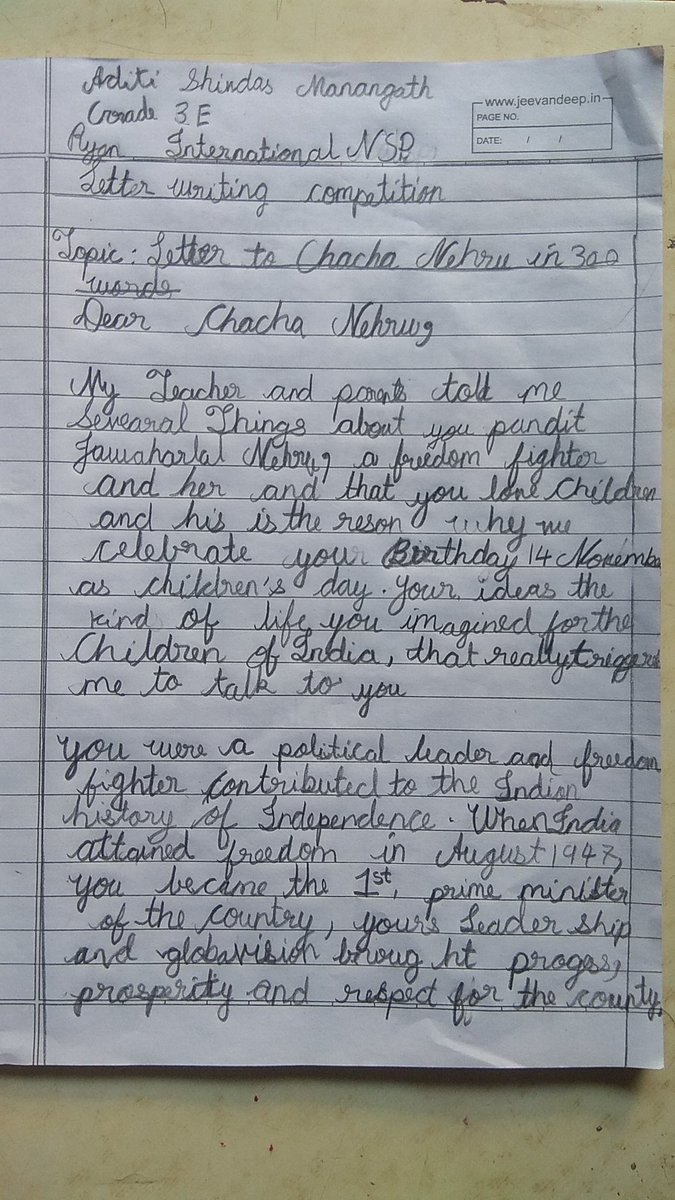 Aditi Shindas Manangath
www.jeevandeep.in
Grade 3 E
PAGE NO.
DATE: / /
Ryan International NSP
Letter writing competition
Topic: Letter to Chacha Nehru in 300
words
Dear Chacha Nehru,
My Teacher and parents told me
Sevearal Things about you pandit
Jawaharlal Nehru, a freedom fighter
and her and that you love Children
and his is the reson why we
celebrate your Birthday 14 Novemba
as children's day. Your ideas the
kind of life you imagined for the
Children of India, that really trigger
me to talk to you
you were a political leader and freedom
fighter contributed to the Indian
history of Independence. When India
attained freedom in August 1947,
you became the 1st, prime minister
of the country, yours Leader ship
and globavision broug ht progss,
prosperity and respect for the county.